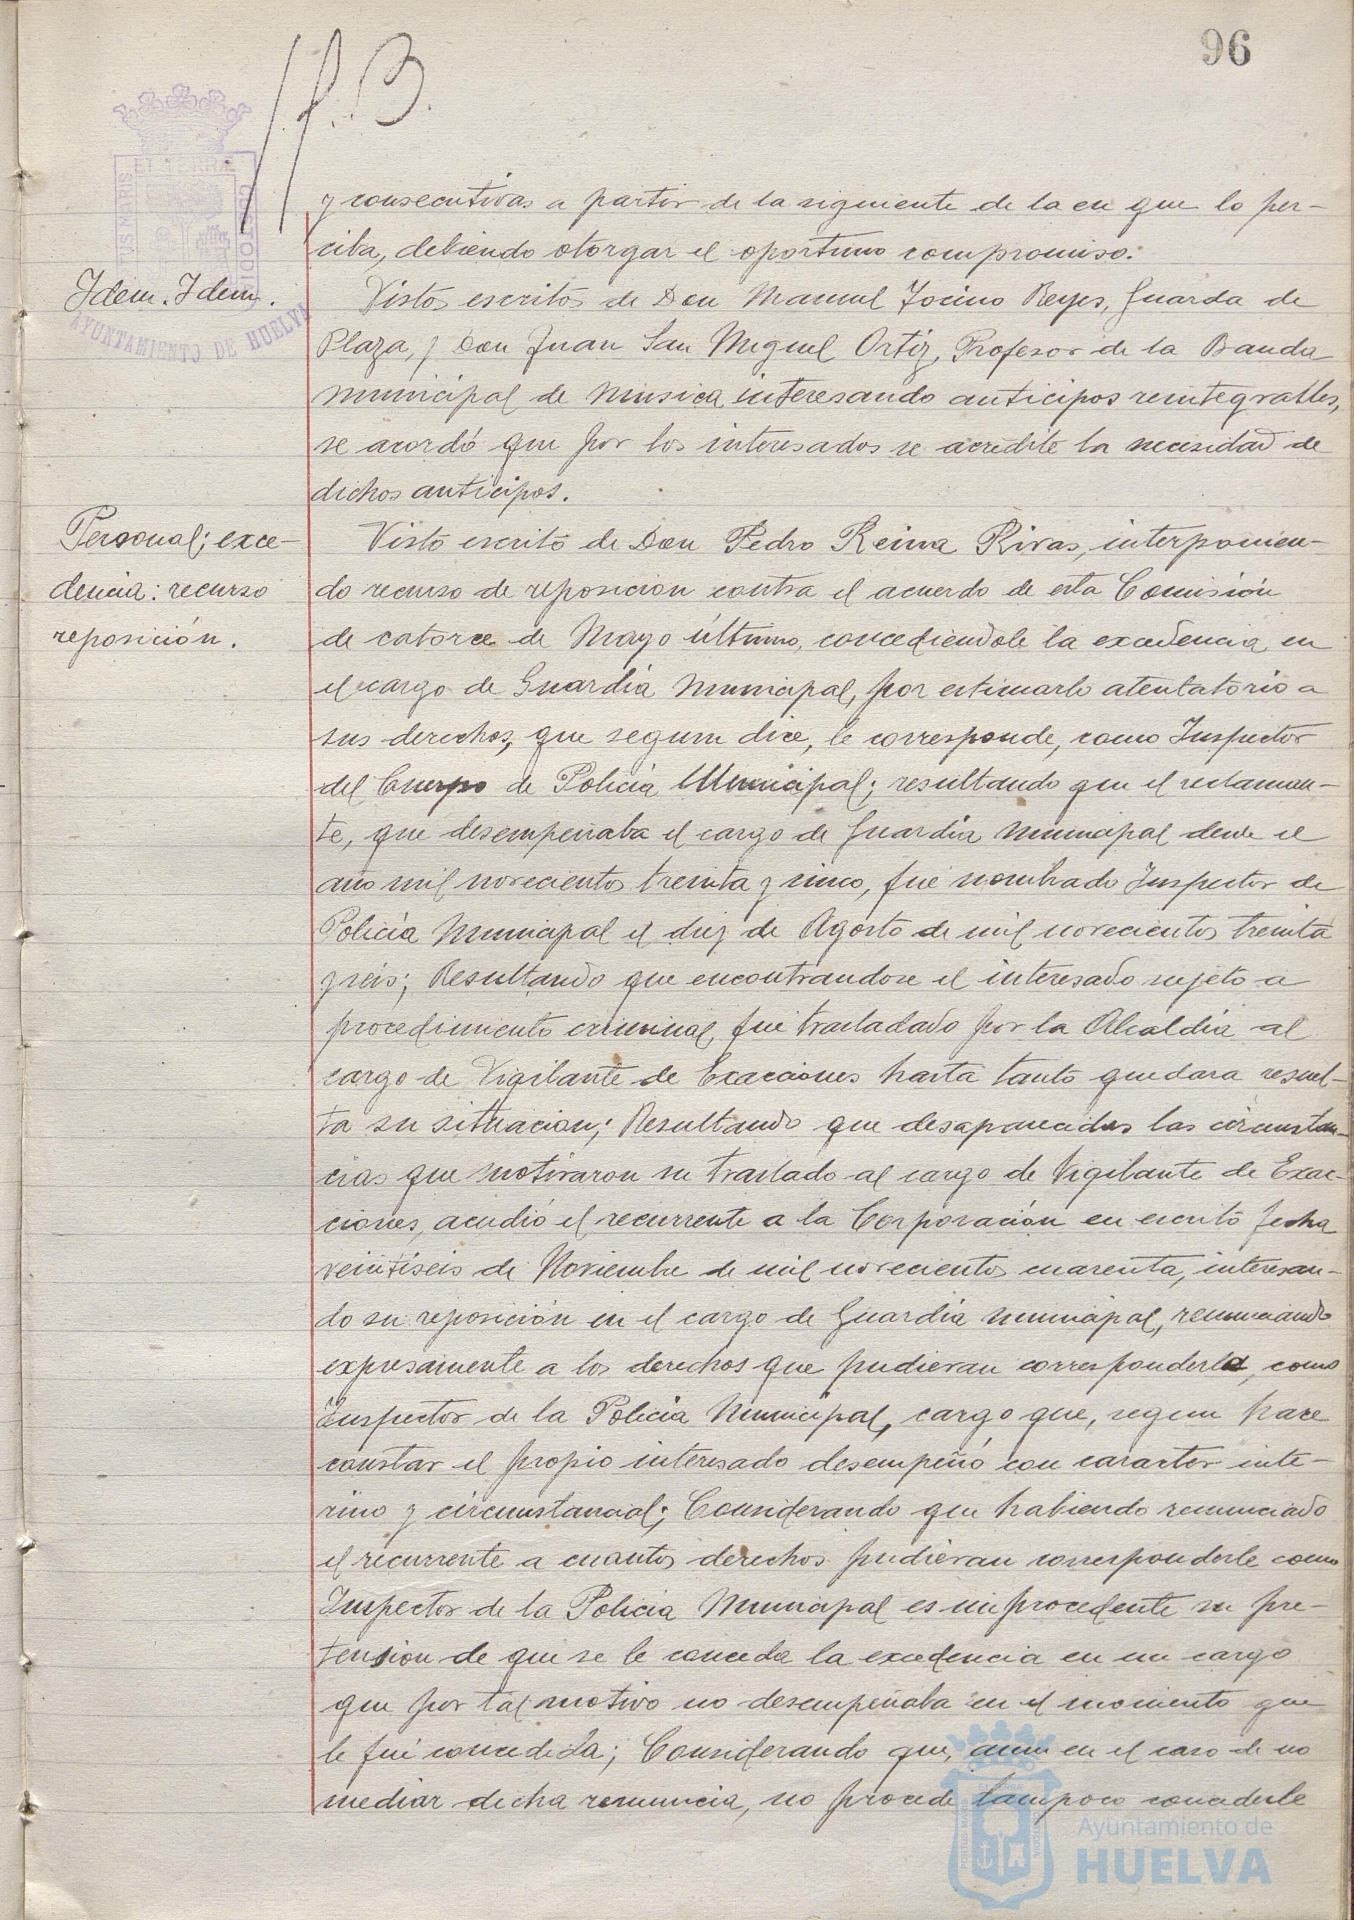 96
ET TERRÆ
CUSTODIA
AYUNTAMIENTO DE HUELVA
y consecutivas a partir de la siguiente de la en que lo per-
ciba, debiendo otorgar el oportuno compromiso.
Idem. Idem.
Vistos escritos de Don Manuel Tocino Reyes, Guarda de
Plaza, y Don Juan San Miguel Ortiz, Profesor de la Banda
municipal de Musica interesando anticipos reintegrables,
se acordó que por los interesados se acredite la necesidad de
dichos anticipos.
Personal; exce-
dencia: recurso
reposición.
Visto escrito de Don Pedro Reina Rivas, interponien-
do recurso de reposicion contra el acuerdo de esta Comisión
de catorce de Mayo último, concediendole la excedencia en
el cargo de Guardia Municipal, por estimarlo atentatorio a
sus derechos, que segun dice, le corresponde, como Inspector
del Cuerpo de Policia Municipal; resultando que el reclaman-
te, que desempeñaba el cargo de Guardia Municipal desde el
año mil novecientos treinta y cinco, fué nombrado Inspector de
Policia Municipal el diez de Agosto de mil novecientos treinta
y seis; Resultando que encontrandose el interesado sujeto a
procedimiento criminal, fué trasladado por la Alcaldia al
cargo de Vigilante de Exacciones hasta tanto quedara resuel-
ta su situacion; Resultando que desaparecidas las circunstan-
cias que motivaron su traslado al cargo de Vigilante de Exac-
ciones, acudió el recurrente a la Corporación en escrito fecha
veintiseis de Noviembre de mil novecientos cuarenta, interesan-
do su reposición en el cargo de Guardia Municipal, renunciando
expresamente a los derechos que pudieran corresponderle, como
Inspector de la Policia Municipal, cargo que, segun hace
constar el propio interesado desempeñó con caracter inte-
rino y circunstancial; Considerando que habiendo renunciado
el recurrente a cuantos derechos pudieran corresponderle como
Inspector de la Policia Municipal es improcedente su pre-
tension de que se le conceda la excedencia en un cargo
que por tal motivo no desempeñaba en el momento que
le fué concedida; Considerando que, aun en el caso de no
mediar dicha renuncia, no procede tampoco concederle
Ayuntamiento de
HUELVA